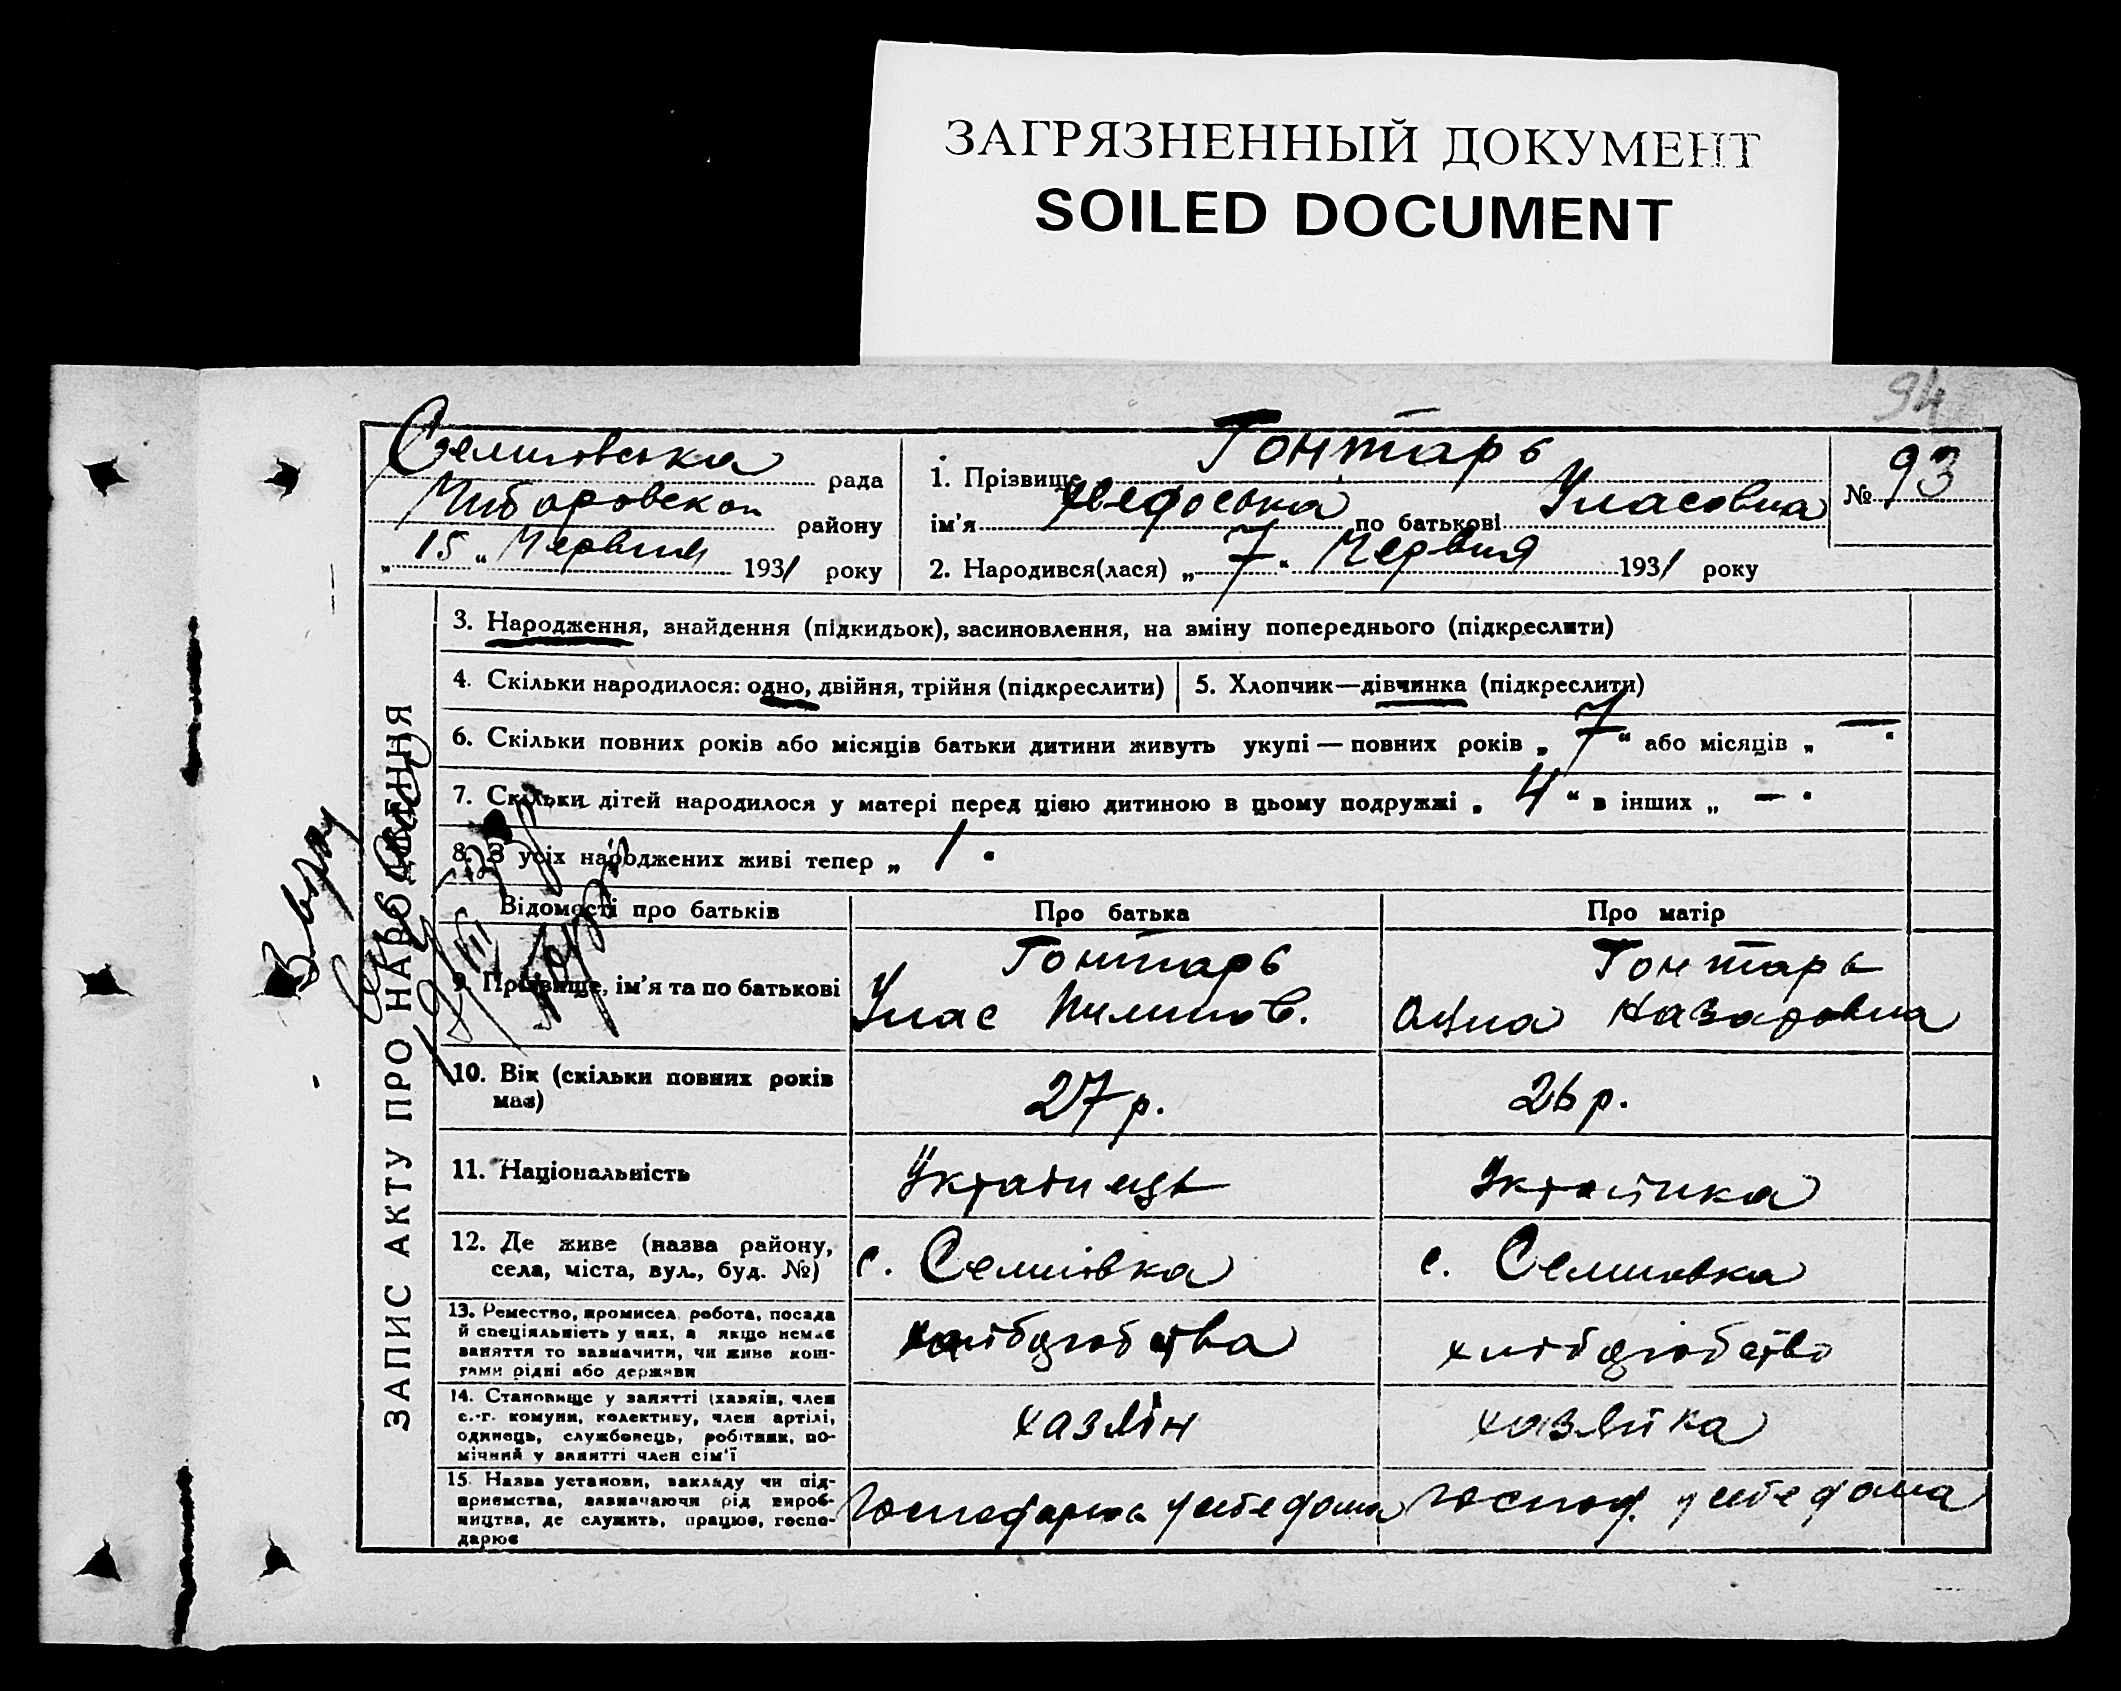 ЗАГРЯЗНЕННЫЙ ДОКУМЕНТ
SOILED DOCUMENT
94
рада
району
„ 15 “ 1931 року
1. Прізвище Гонтарь
ім’я по батькові Уласовна
№ 93
2. Народився(лася) „ 7 “ Червня 1931 року
ЗАПИС АКТУ ПРО НАРОДЖЕННЯ
3. Народження, знайдення (підкидьок), засиновлення, на зміну попереднього (підкреслити)
4. Скільки народилося: одно, двійня, трійня (підкреслити) 5. Хлопчик—дівчинка (підкреслити)
6. Скільки повних років або місяців батьки дитини живуть укупі — повних років „ 7 “ або місяців „ — “
7. Скільки дітей народилося у матері перед цією дитиною в цьому подружжі „ 4 “ в інших „ — “
8. З усіх народжених живі тепер „ 1 “
Відомості про батьків Про батька Про матір
9. Прізвище, ім’я та по батькові Гонтарь Гонтарь
Улас Пилипов. Назаровна
10. Вік (скільки повних років має) 27 р. 26 р.
11. Національність Українець Українка
12. Де живе (назва району,
села, міста, вул., буд. №) с. с.
13. Ремество, промисел, робота, посада
й спеціяльність у них, а якщо немає
заняття то зазначити, чи живе кош-
тами рідні або держави
14. Становище у занятті (хазяїн, член
с.-г. комуни, колективу, член артілі,
одинець, службовець, робітник, по-
мічний у занятті член сім’ї хазяїн хазяйка
15. Назва установи, закладу чи під-
приємства, зазначаючи рід вироб-
ництва, де служить, працює, госпо-
дарює Господарює у себе дома господ. у себе дома